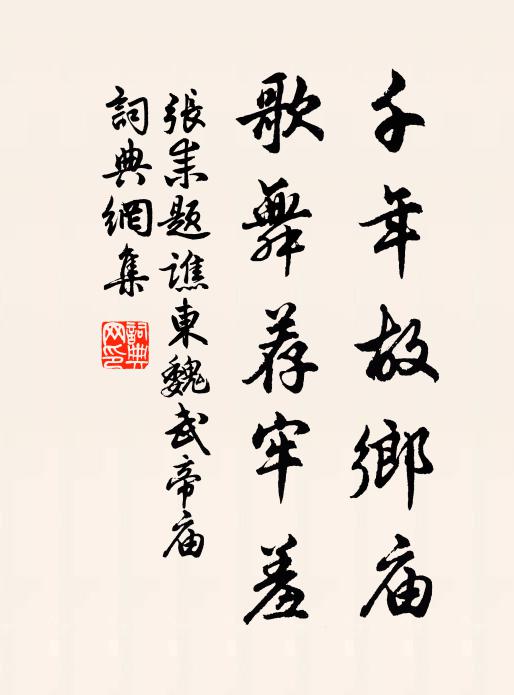 千年故鄉庙
歌舞荐牢羞
張耒题譙東魏武帝庙
詞典網集
詞典网印